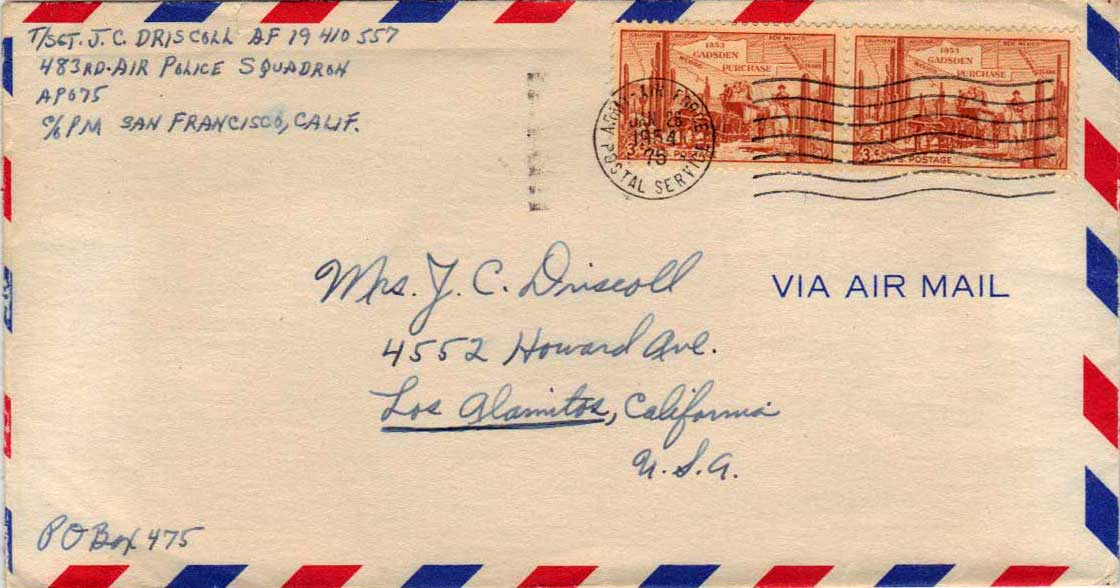 T/SGT. J. C. DRISCOLL AF 19 410 557
483RD-AIR POLICE SQUADRON
APO75
C/O PM SAN FRANCISCO, CALIF.
CALIFORNIA ARIZONA NEW MEXICO
1853
GADSDEN
PURCHASE
MEXICO TEXAS
3¢ U.S. POSTAGE
CALIFORNIA ARIZONA NEW MEXICO
1853
GADSDEN
PURCHASE
MEXICO TEXAS
3¢ U.S. POSTAGE
ARMY-AIR FORCE
JAN 26
1954
75
POSTAL SERVICE
Mrs. J. C. Driscoll
VIA AIR MAIL
4552 Howard Ave.
Los Alamitos, California
U.S.A.
PO Box 475